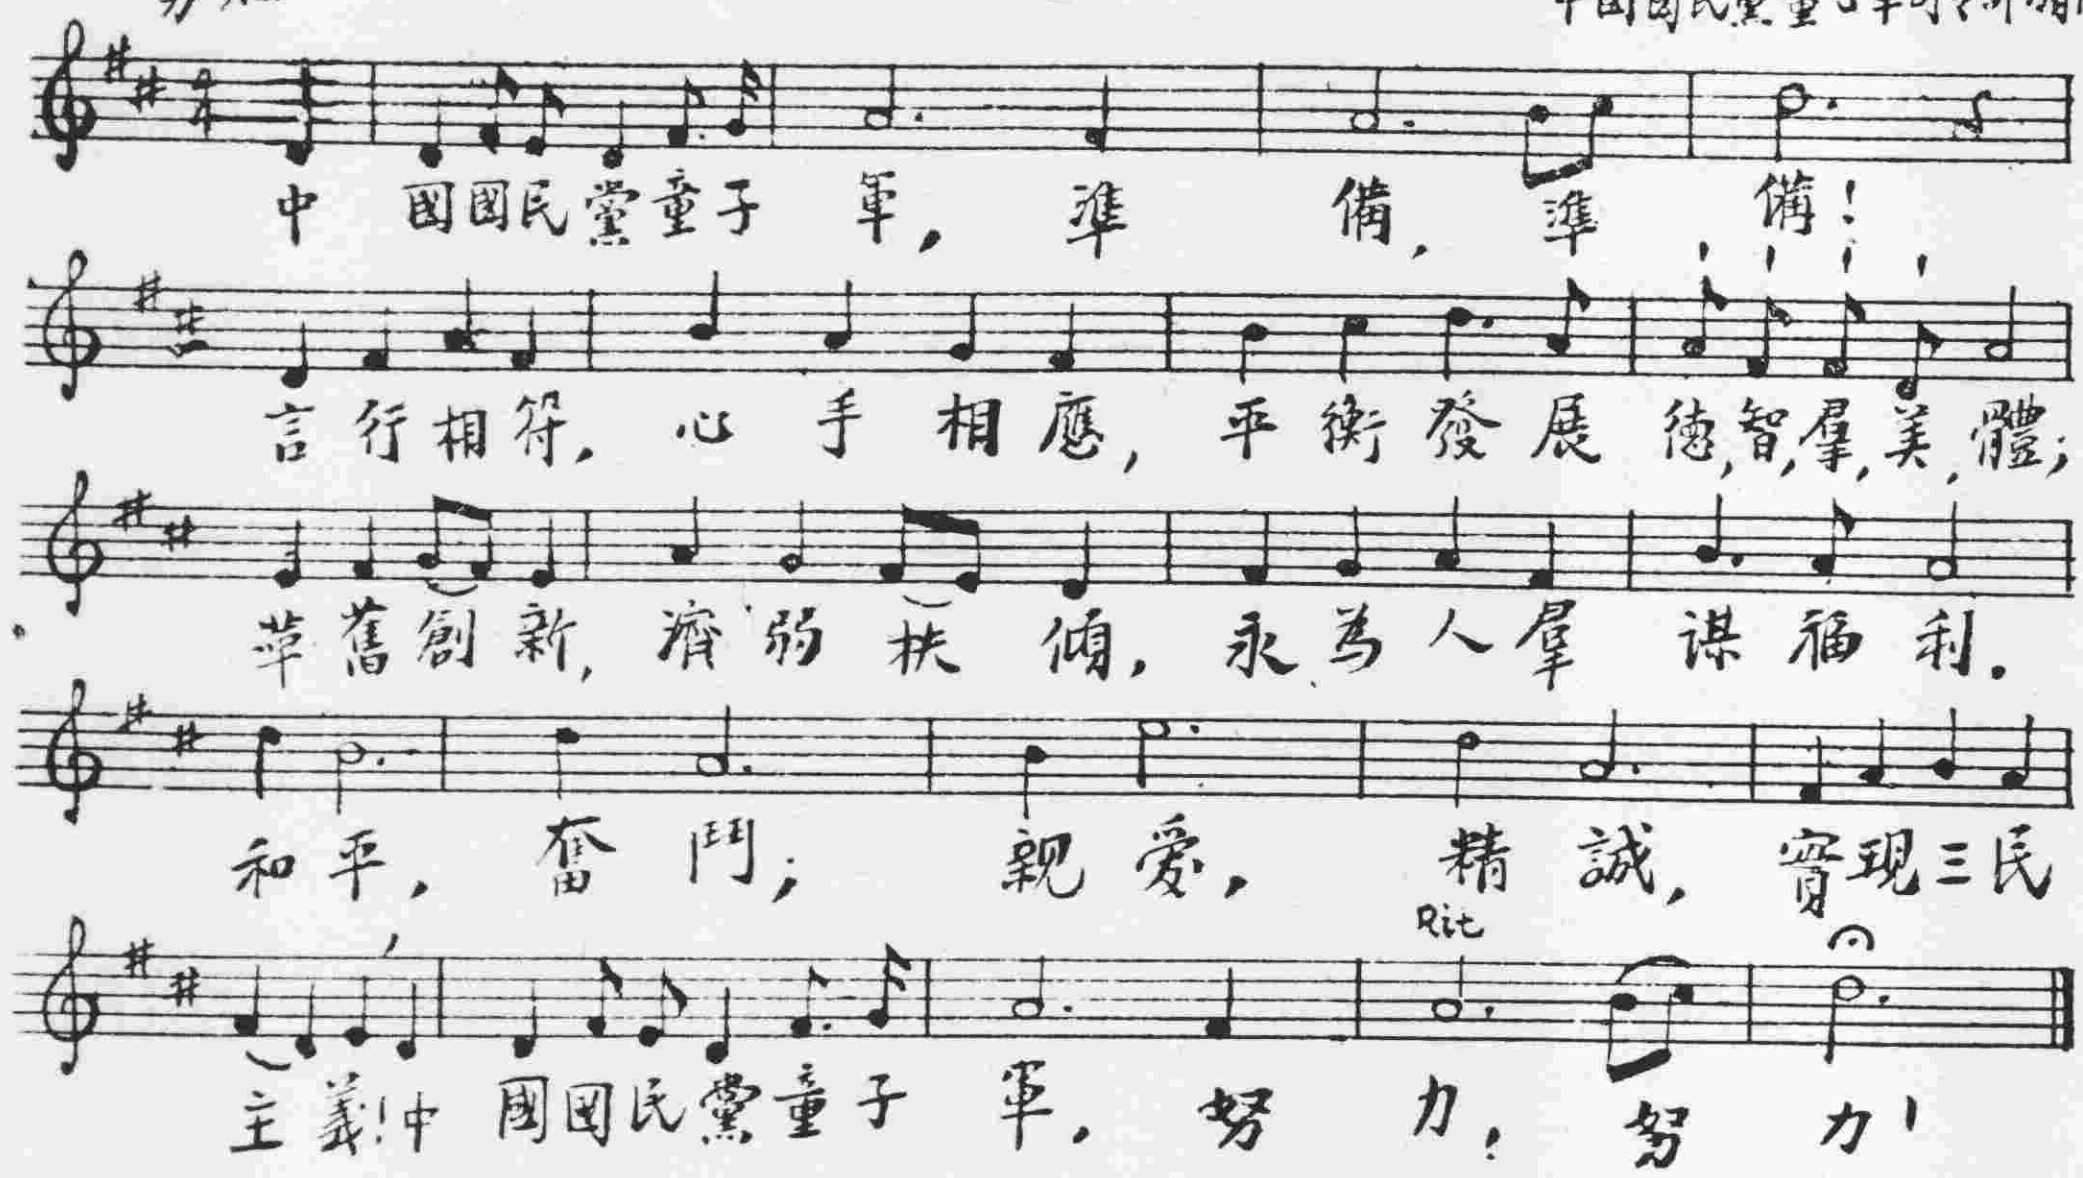 中國國民黨童子軍
中國國民黨童子軍，準備，準備！
言行相符，心手相應，平衡發展德,智,羣,美,體；
革舊創新，濟弱扶傾，永為人羣謀福利．
和平，奮鬥；親愛，精誠，實現三民
Rit
主義！中國國民黨童子軍，努力，努力！